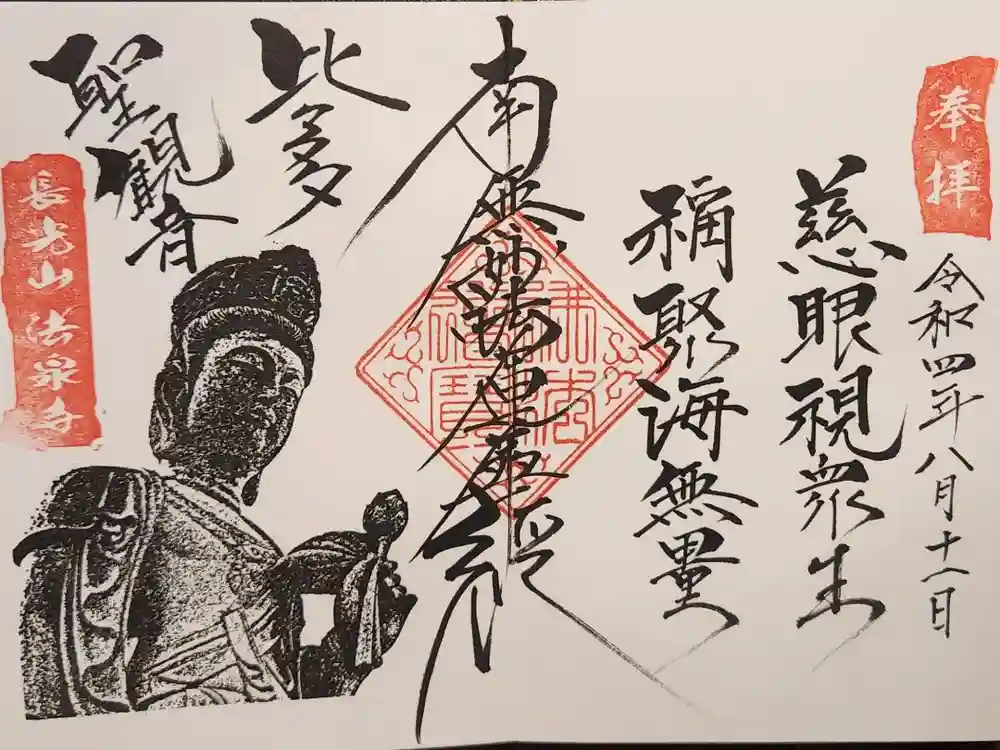 奉拝
令和四年八月十一日
慈眼視衆生
福聚海無量
南無妙法蓮華経
佛法僧寶
比多
聖観音
長光山法泉寺